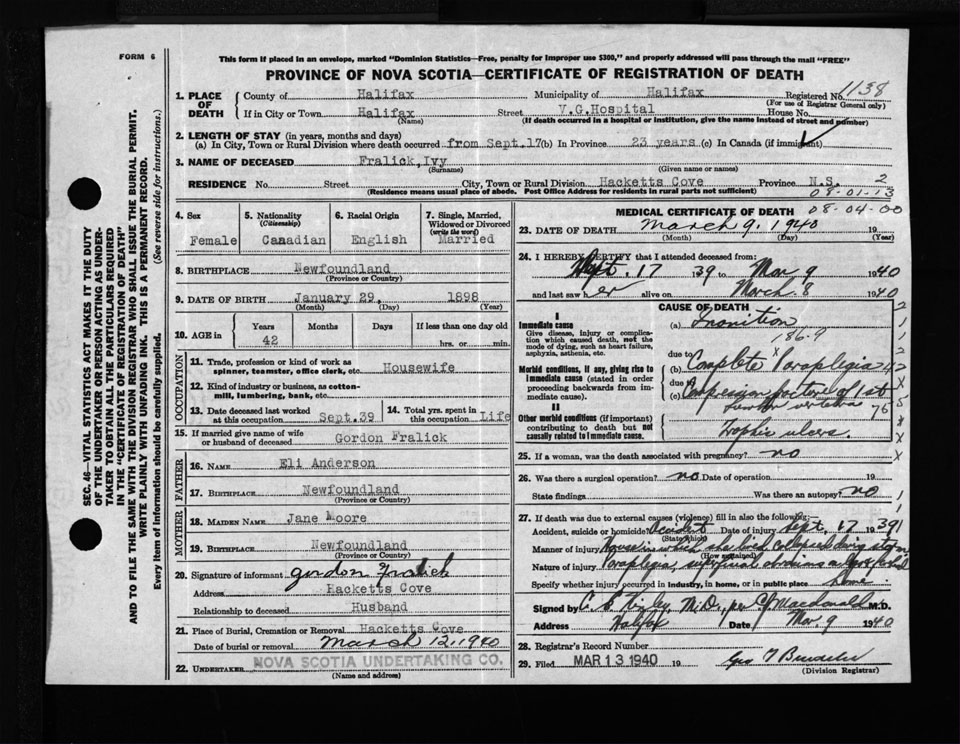 FORM 6
This form if placed in an envelope, marked "Dominion Statistics—Free, penalty for improper use $300," and properly addressed will pass through the mail "FREE"
PROVINCE OF NOVA SCOTIA—CERTIFICATE OF REGISTRATION OF DEATH
1. PLACE OF DEATH
County of Halifax Municipality of Halifax Registered No. 1138
(For use of Registrar General only)
If in City or Town Halifax Street V.G.Hospital House No.
(Name) (If death occurred in a hospital or institution, give the name instead of street and number)
2. LENGTH OF STAY (in years, months and days)
(a) In City, Town or Rural Division where death occurred from Sept.17 (b) In Province 23 years (c) In Canada (if immigrant)
3. NAME OF DECEASED Fralick, Ivy
(Surname) (Given name or names)
RESIDENCE No. Street City, Town or Rural Division Hacketts Cove Province N.S. 2
(Residence means usual place of abode. Post Office Address for residents in rural parts not sufficient) 08-01-13
SEC. 46—VITAL STATISTICS ACT MAKES IT THE DUTY
OF THE UNDERTAKER OR PERSON ACTING AS UNDER-
TAKER TO OBTAIN ALL THE PARTICULARS REQUIRED
IN THE "CERTIFICATE OF REGISTRATION OF DEATH"
AND TO FILE THE SAME WITH THE DIVISION REGISTRAR WHO SHALL ISSUE THE BURIAL PERMIT.
WRITE PLAINLY WITH UNFADING INK. THIS IS A PERMANENT RECORD.
Every item of information should be carefully supplied. (See reverse side for instructions.)
4. Sex
Female
5. Nationality
(Citizenship)
Canadian
6. Racial Origin
English
7. Single, Married,
Widowed or Divorced
(write the word)
Married
8. BIRTHPLACE Newfoundland
(Province or Country)
9. DATE OF BIRTH January 29, 1898
(Month) (Day) (Year)
10. AGE in
Years Months Days If less than one day old
42 hrs. or min.
OCCUPATION
11. Trade, profession or kind of work as
spinner, teamster, office clerk, etc. Housewife
12. Kind of industry or business, as cotton-
mill, lumbering, bank, etc.
13. Date deceased last worked
at this occupation Sept.39
14. Total yrs. spent in
this occupation Life
15. If married give name of wife
or husband of deceased Gordon Fralick
FATHER
16. NAME Eli Anderson
17. BIRTHPLACE Newfoundland
(Province or Country)
MOTHER
18. MAIDEN NAME Jane Moore
19. BIRTHPLACE Newfoundland
(Province or Country)
20. Signature of informant Gordon Fralick
Address Hacketts Cove
Relationship to deceased Husband
21. Place of Burial, Cremation or Removal Hacketts Cove
Date of burial or removal March 12, 1940
22. UNDERTAKER NOVA SCOTIA UNDERTAKING CO.
(Name and address)
MEDICAL CERTIFICATE OF DEATH 08-04-00
23. DATE OF DEATH March 9, 1940 19
(Month) (Day) (Year)
24. I HEREBY CERTIFY that I attended deceased from:
Sept. 17 39 to Mar 9 1940
and last saw her alive on March 8 1940
CAUSE OF DEATH
I
Immediate cause
Give disease, injury or complica-
tion which caused death, not the
mode of dying, such as heart failure,
asphyxia, asthenia, etc.
(a) Inanition
186.9
due to
Morbid conditions, if any, giving rise to
immediate cause (stated in order
proceeding backwards from im-
mediate cause).
(b) Complete Paraplegia
due to
(c) Compression fracture of 1st
lumbar vertebra 76
II
Other morbid conditions (if important)
contributing to death but not
causally related to immediate cause.
Trophic ulcers.
25. If a woman, was the death associated with pregnancy? no
26. Was there a surgical operation? no Date of operation 19
State findings Was there an autopsy? no
27. If death was due to external causes (violence) fill in also the following:—
Accident, suicide or homicide? Accident Date of injury Sept. 17 1939
(State which)
Manner of injury House in which she lived collapsed during storm
(How sustained)
Nature of injury Paraplegia, superficial abrasions
Specify whether injury occurred in industry, in home, or in public place home
Signed by M.D., per C. J. Macdonald M.D.
Address Halifax Date Mar. 9 1940
28. Registrar's Record Number
29. Filed MAR 13 1940 19
(Division Registrar)